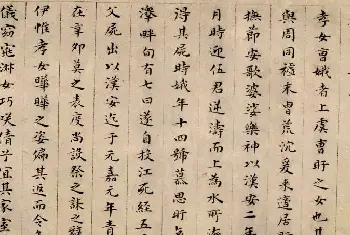 孝女曹娥者上虞曹盱之女也其
與周同祖末胄荒沉爰来適居
撫節安歌婆娑樂神以漢安二年
月時迎伍君逆濤而上為水所淹
得其屍時娥年十四號慕思盱
澤畔旬有七日遂自投江死經五
父屍出以漢安迄于元嘉元年青
在辛卯莫之表度尚設祭之誄之辭
伊惟孝女曄曄之姿偏其返而令
儀窈窕淑女巧咲倩兮宜其家室